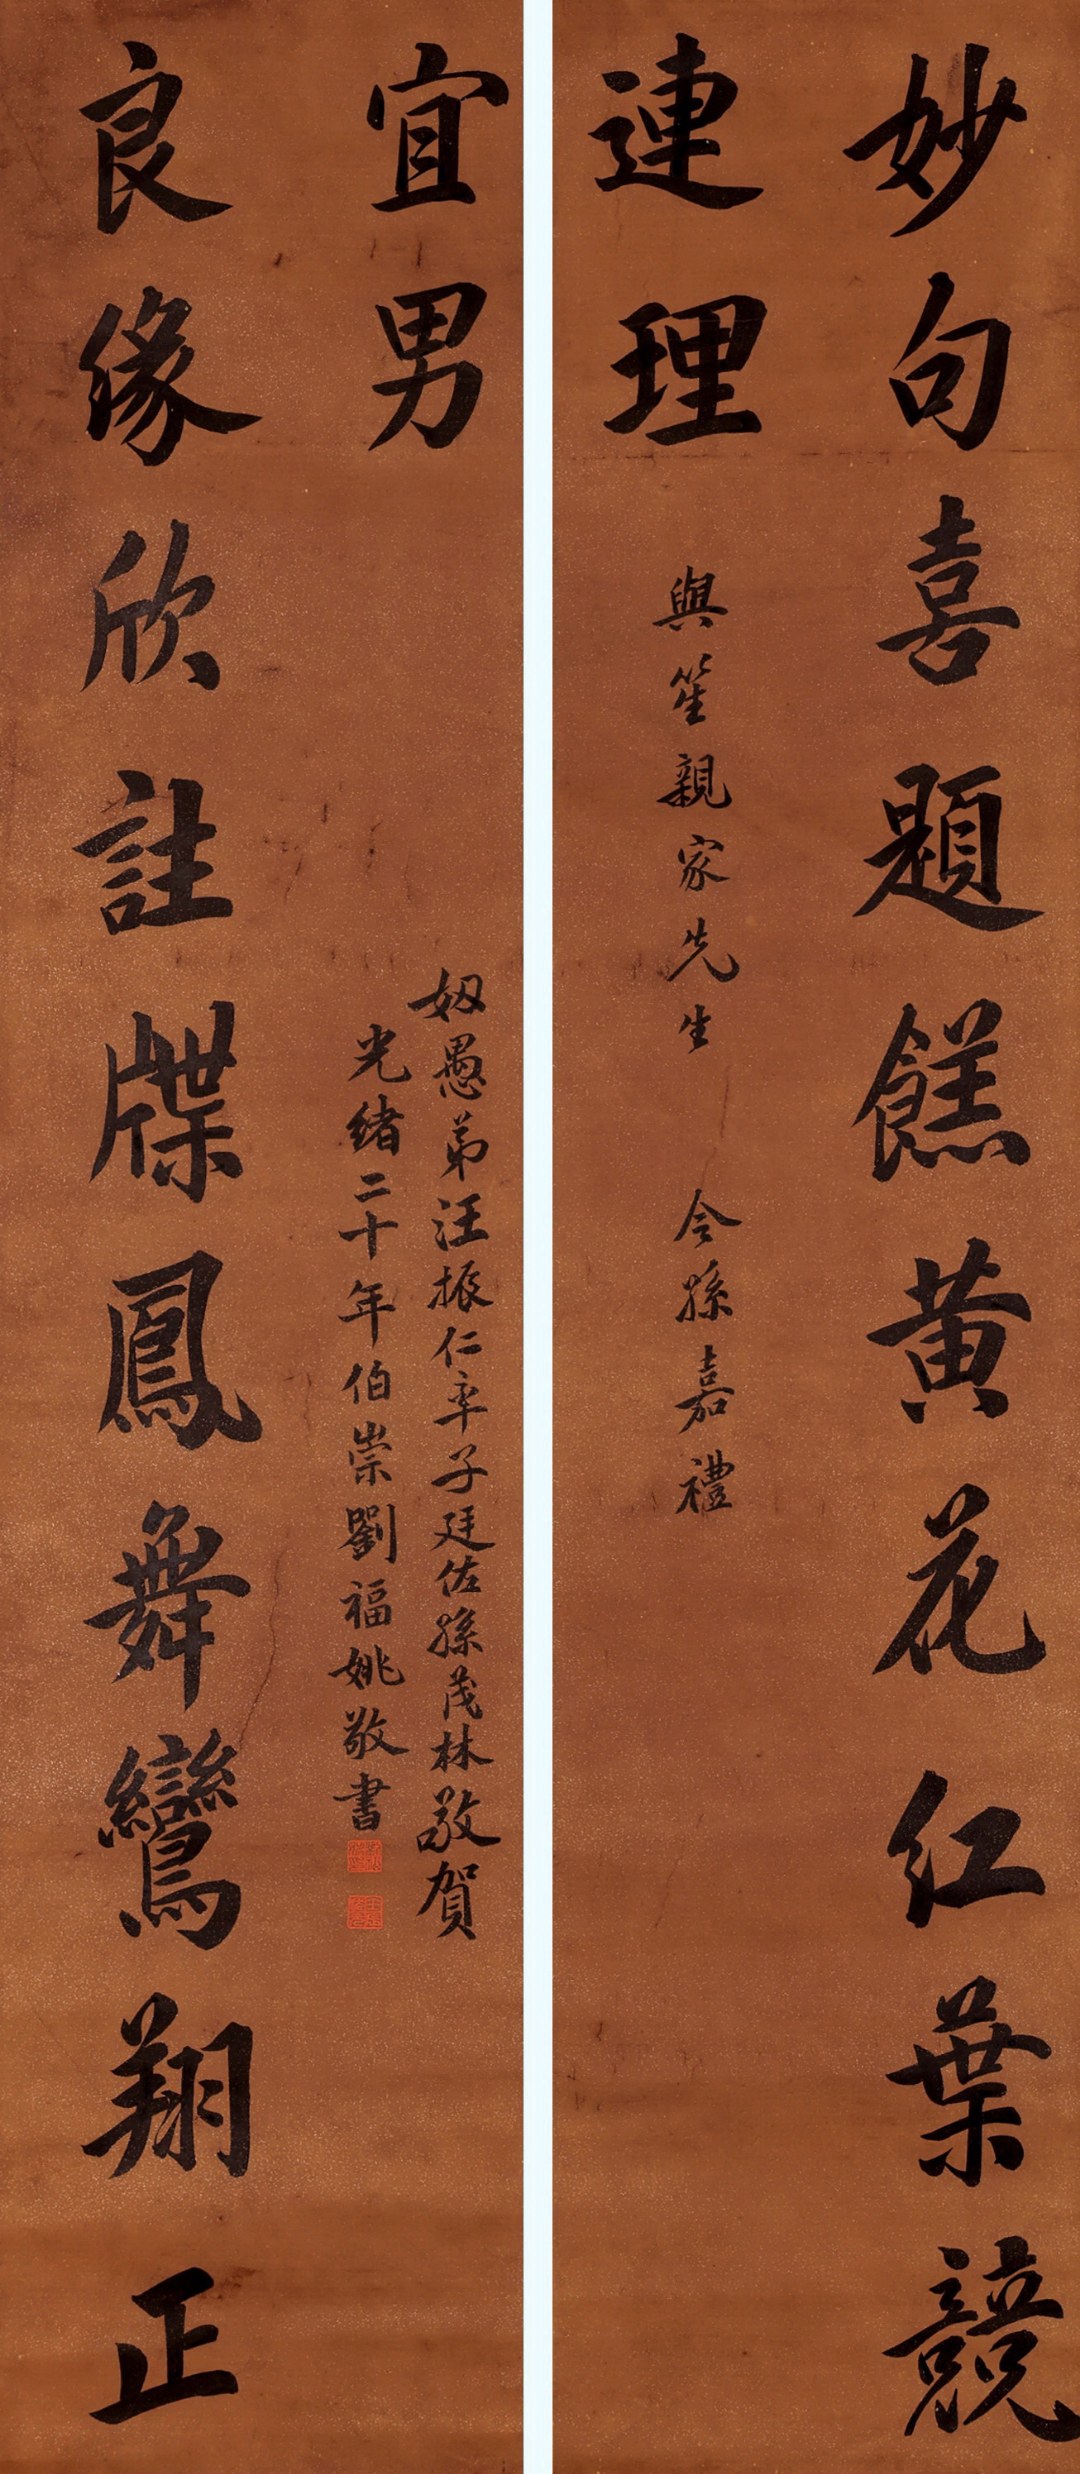 妙句喜題餻黄花红葉競
連理
與笙親家先生　令孫嘉禮
良缘欣註牒鳳舞鸞翔正
宜男
姻愚弟汪振仁率子廷佐孫茂林敬賀
光緒二十年伯崇劉福姚敬書